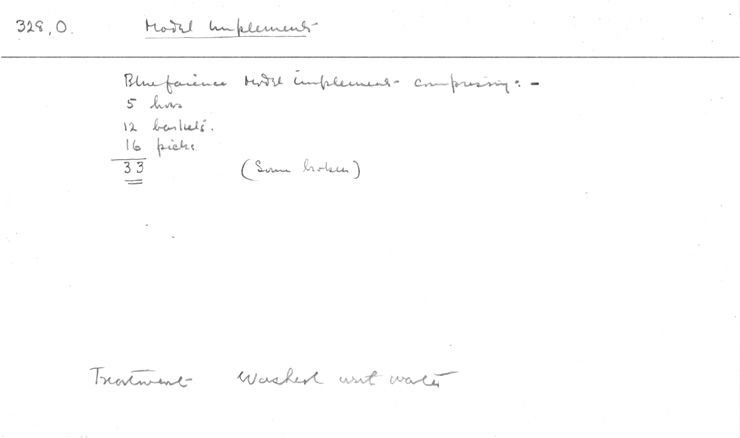 328,O. Model Implements
Blue faience model implements comprising:-
5 hoes
12 baskets.
16 picks
33 (Some broken)
Treatment Washed with water